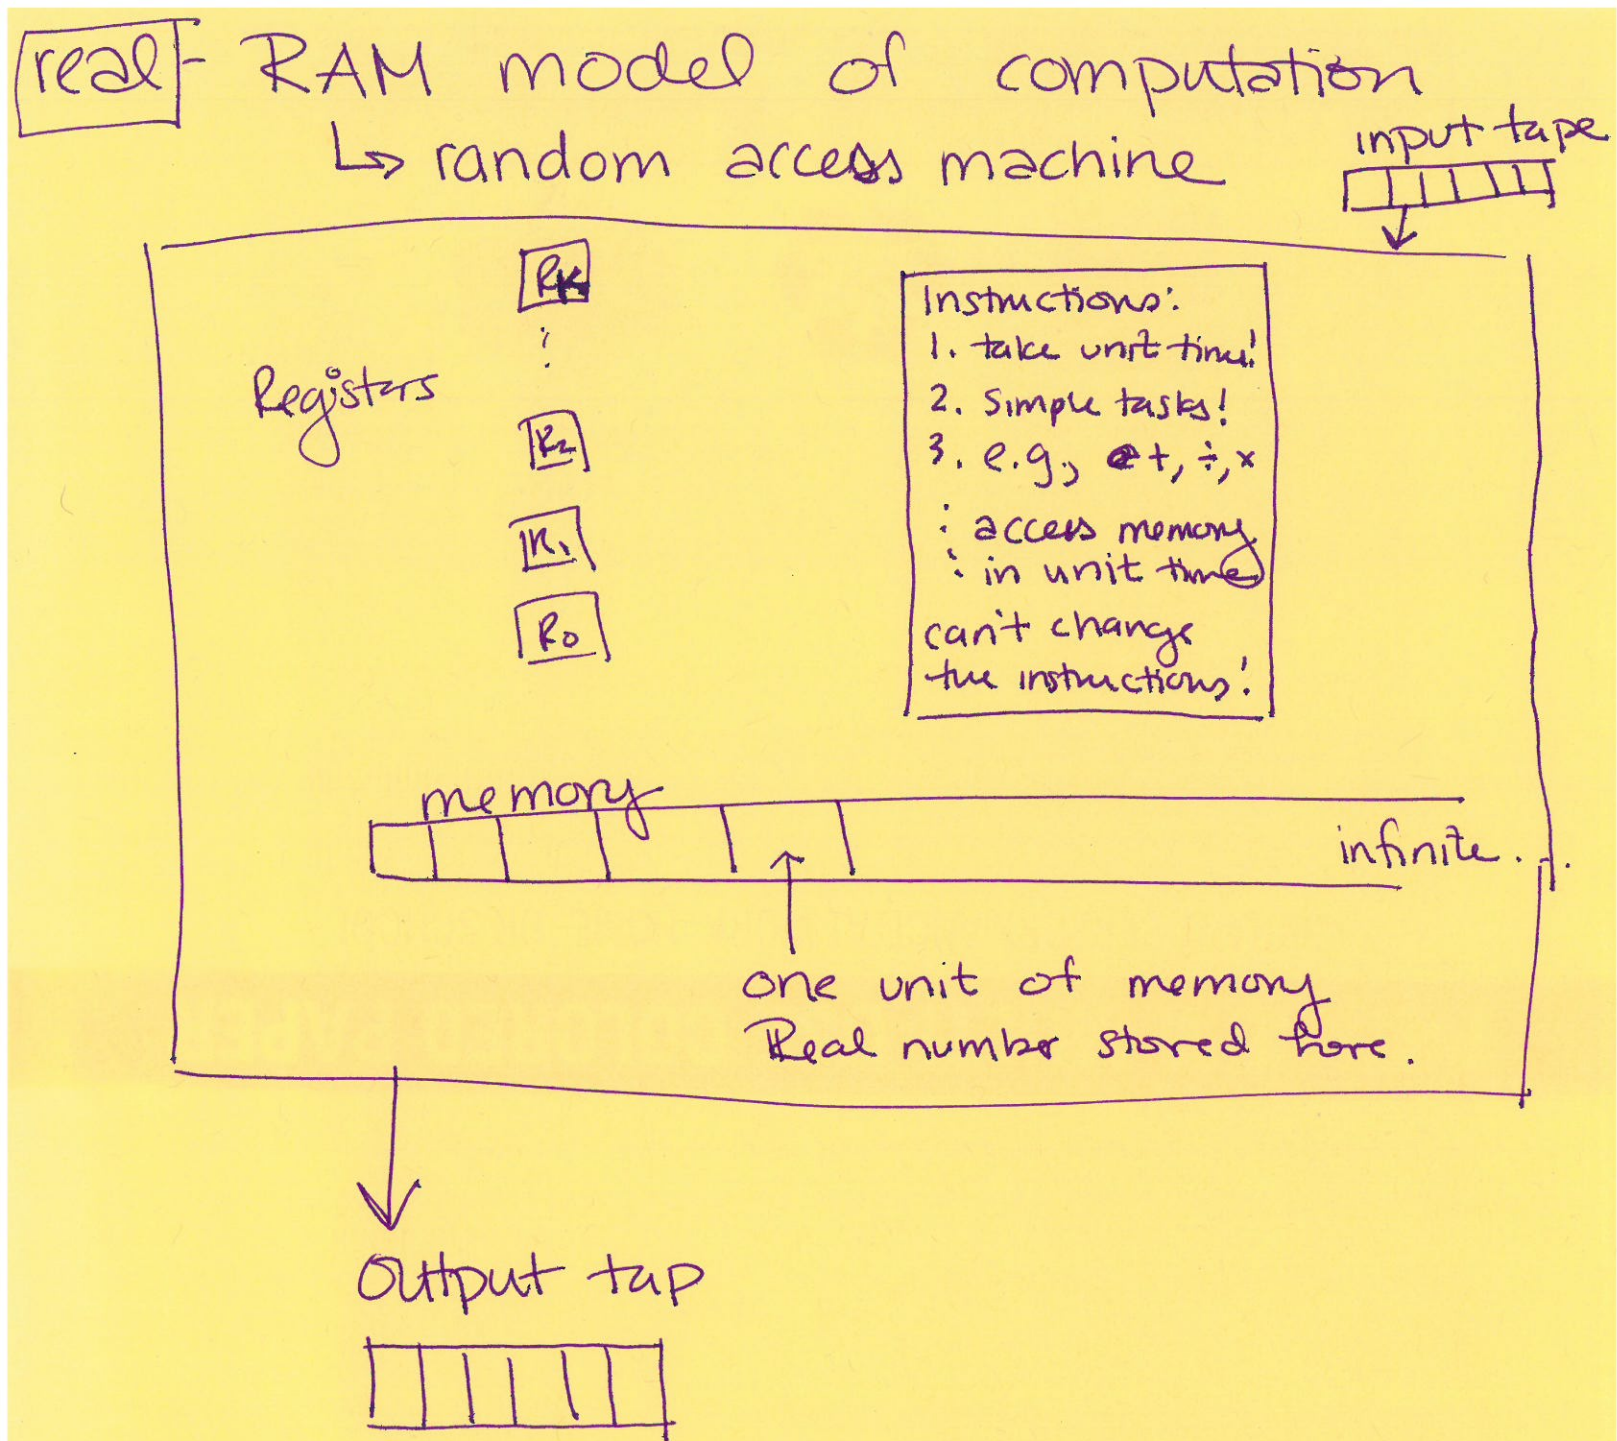 real - RAM model of computation
↳ random access machine
input tape
RK
⋮
Registers
R2
R1
R0
Instructions:
1. take unit time!
2. Simple tasks!
3. e.g., +, ÷, ×
: access memory
: in unit time
can't change
the instructions!
memory
infinite...
one unit of memory
Real number stored here.
Output tap